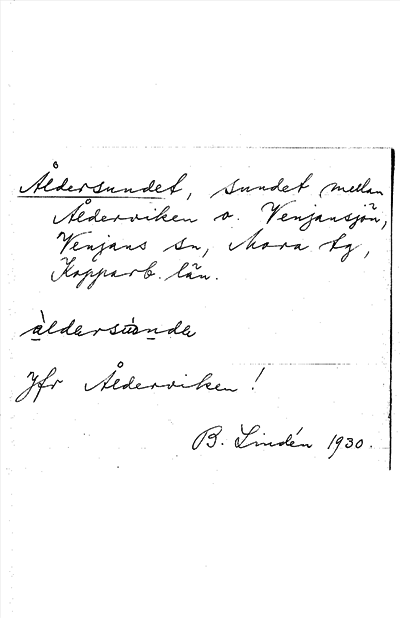 Åldersundet, sundet mellan
Ålderviken o. Venjansjön,
Venjans sn, Mora tg,
Kopparb. län.
Jfr Ålderviken!
B. Lindén 1930.